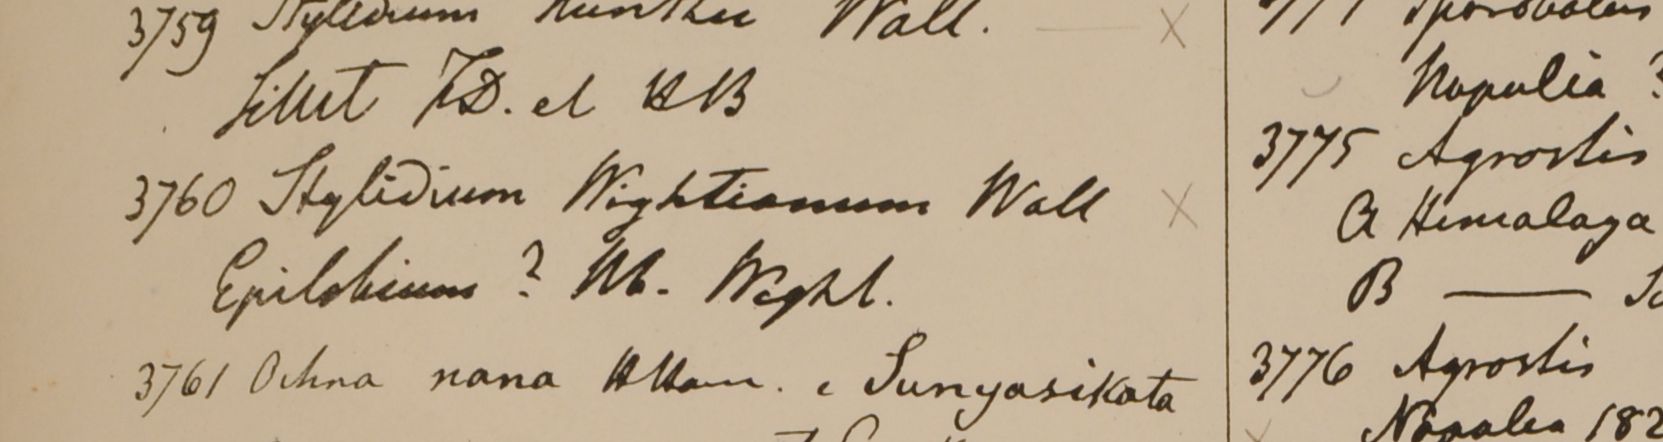 3759 Stylidium Kunthii Wall. — X
Sillet FD. et HB
3760 Stylidium Wightianum Wall X
Epilobium? Hb. Wight.
3761 Ochna nana HHam. e Sunyasikata
Sporobolus
Napalia?
3775 Agrostis
A Himalaya
B —
3776 Agrostis
Napalia 182